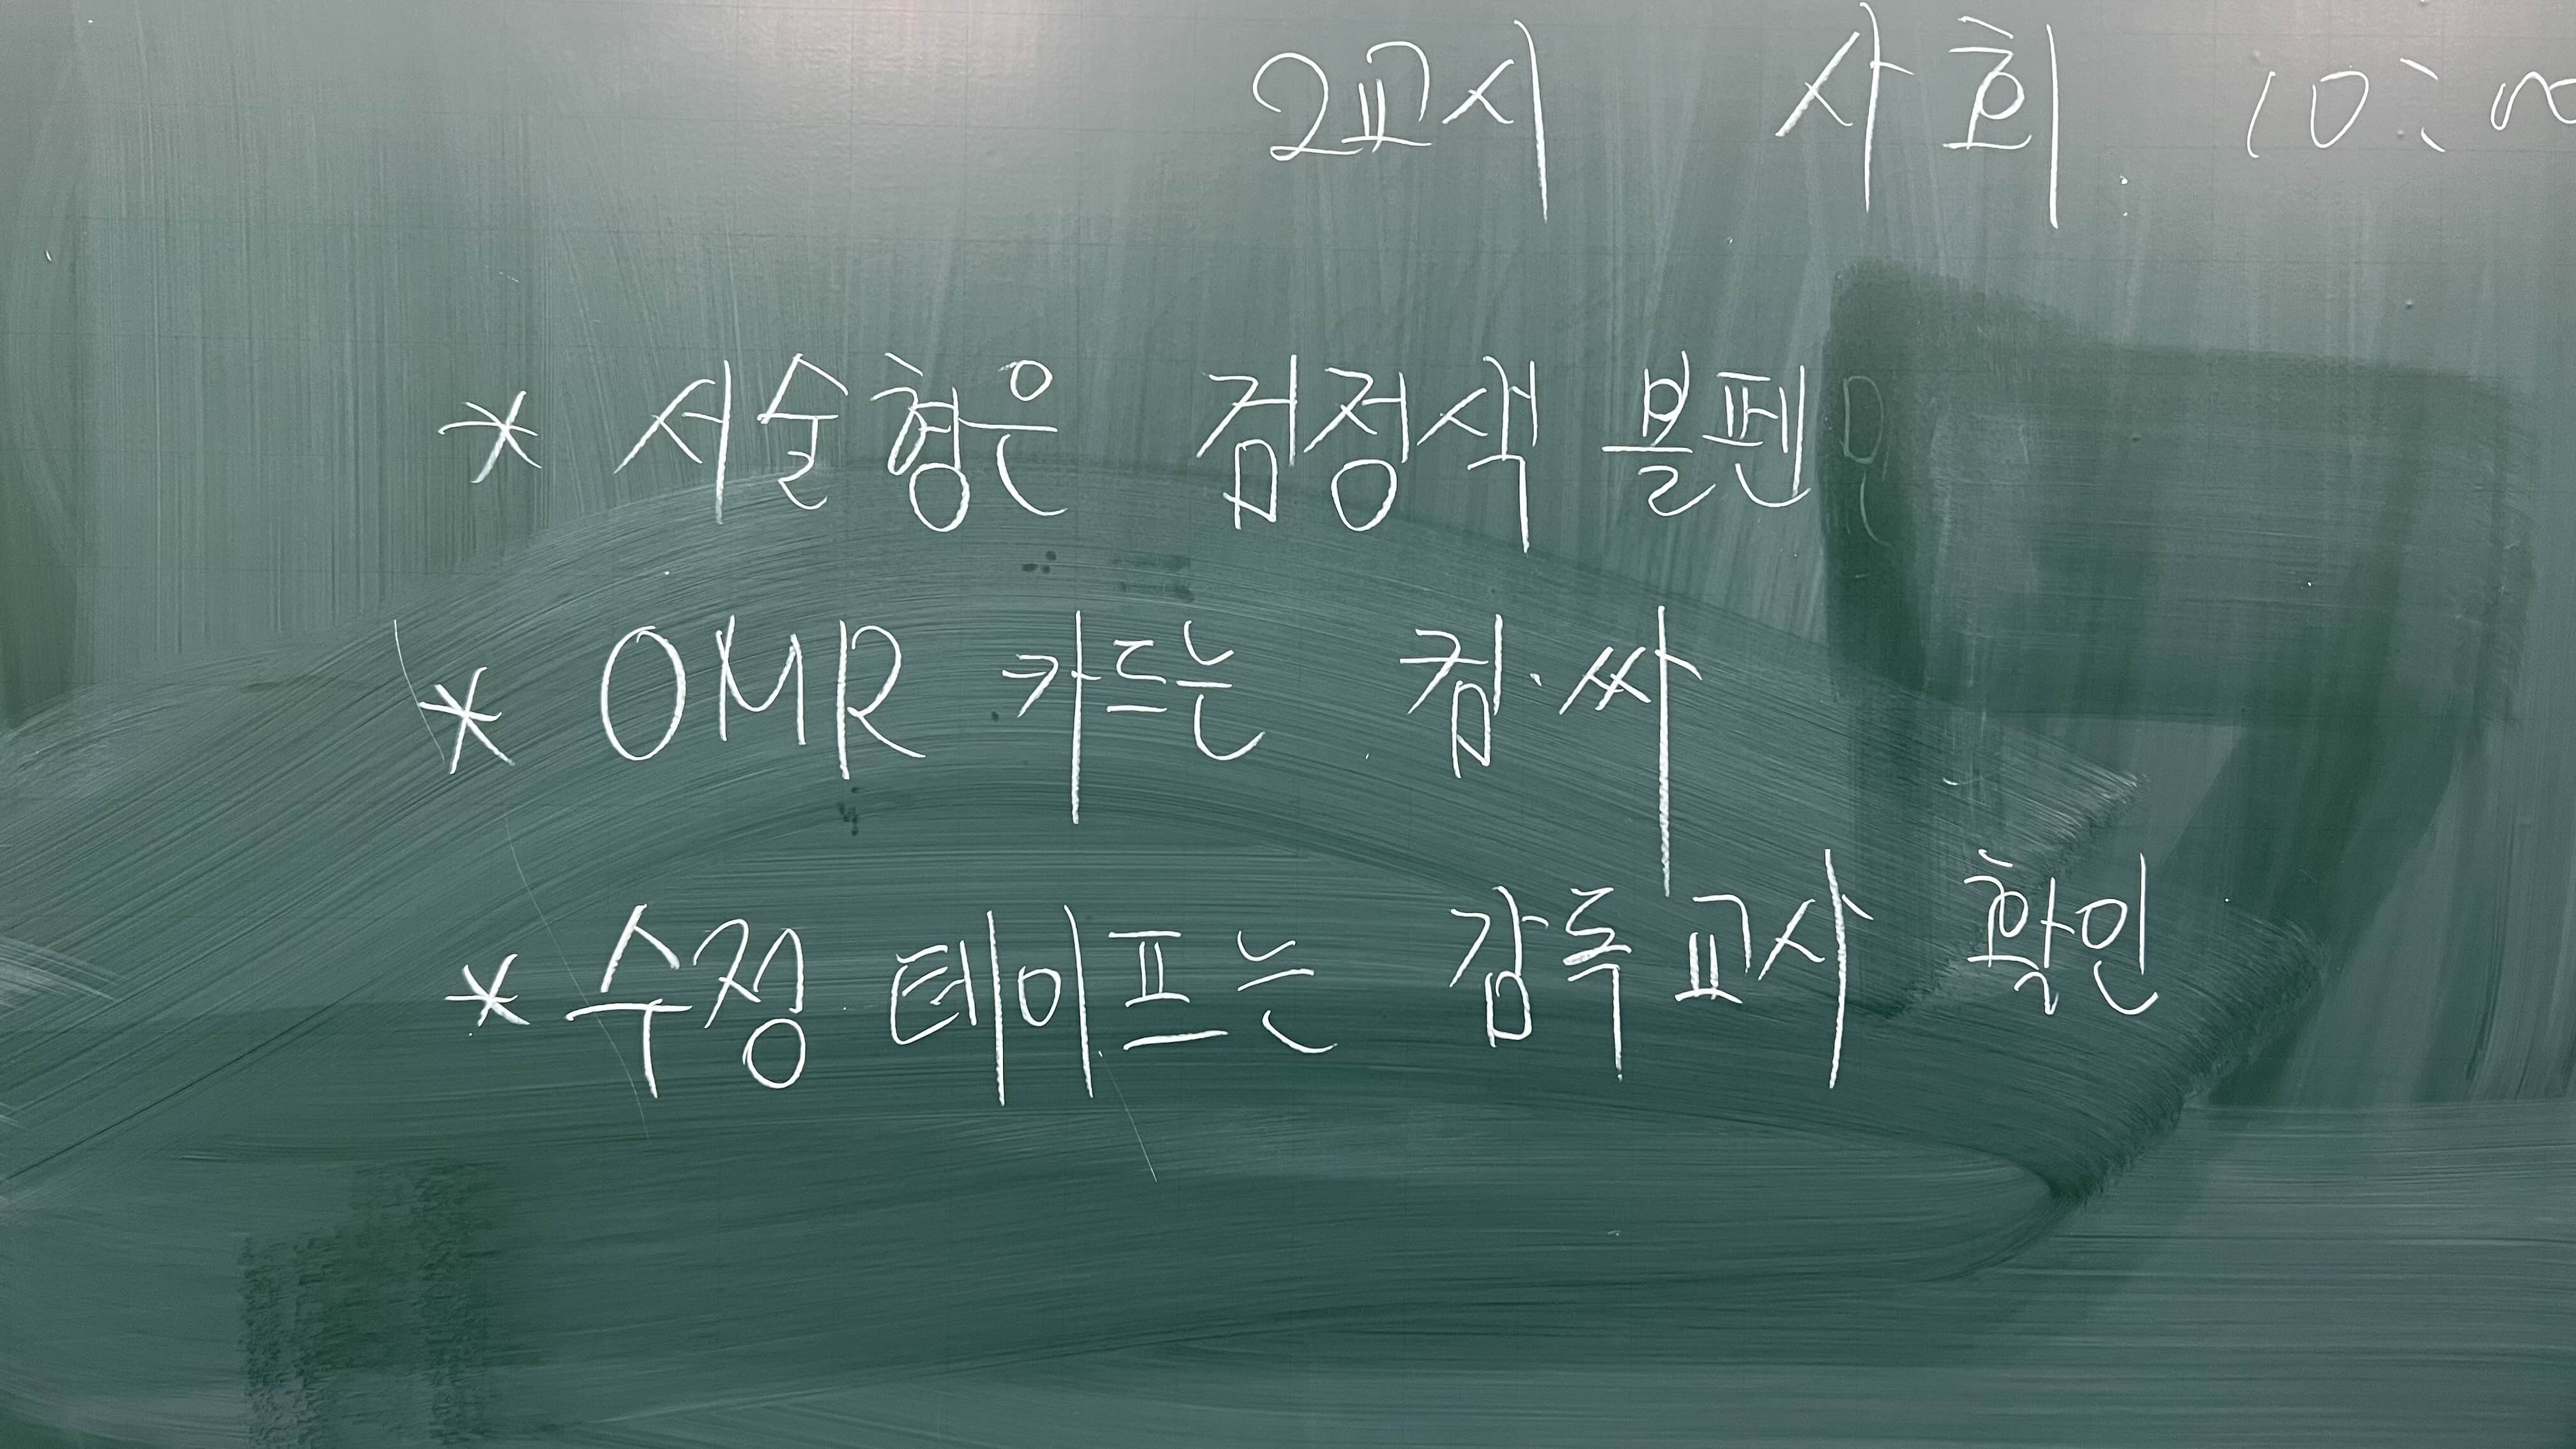 2교시 사회 10:
* 서술형은 검정색 볼펜
* OMR 카드는 컴·싸
* 수정 테이프는 감독교사 확인